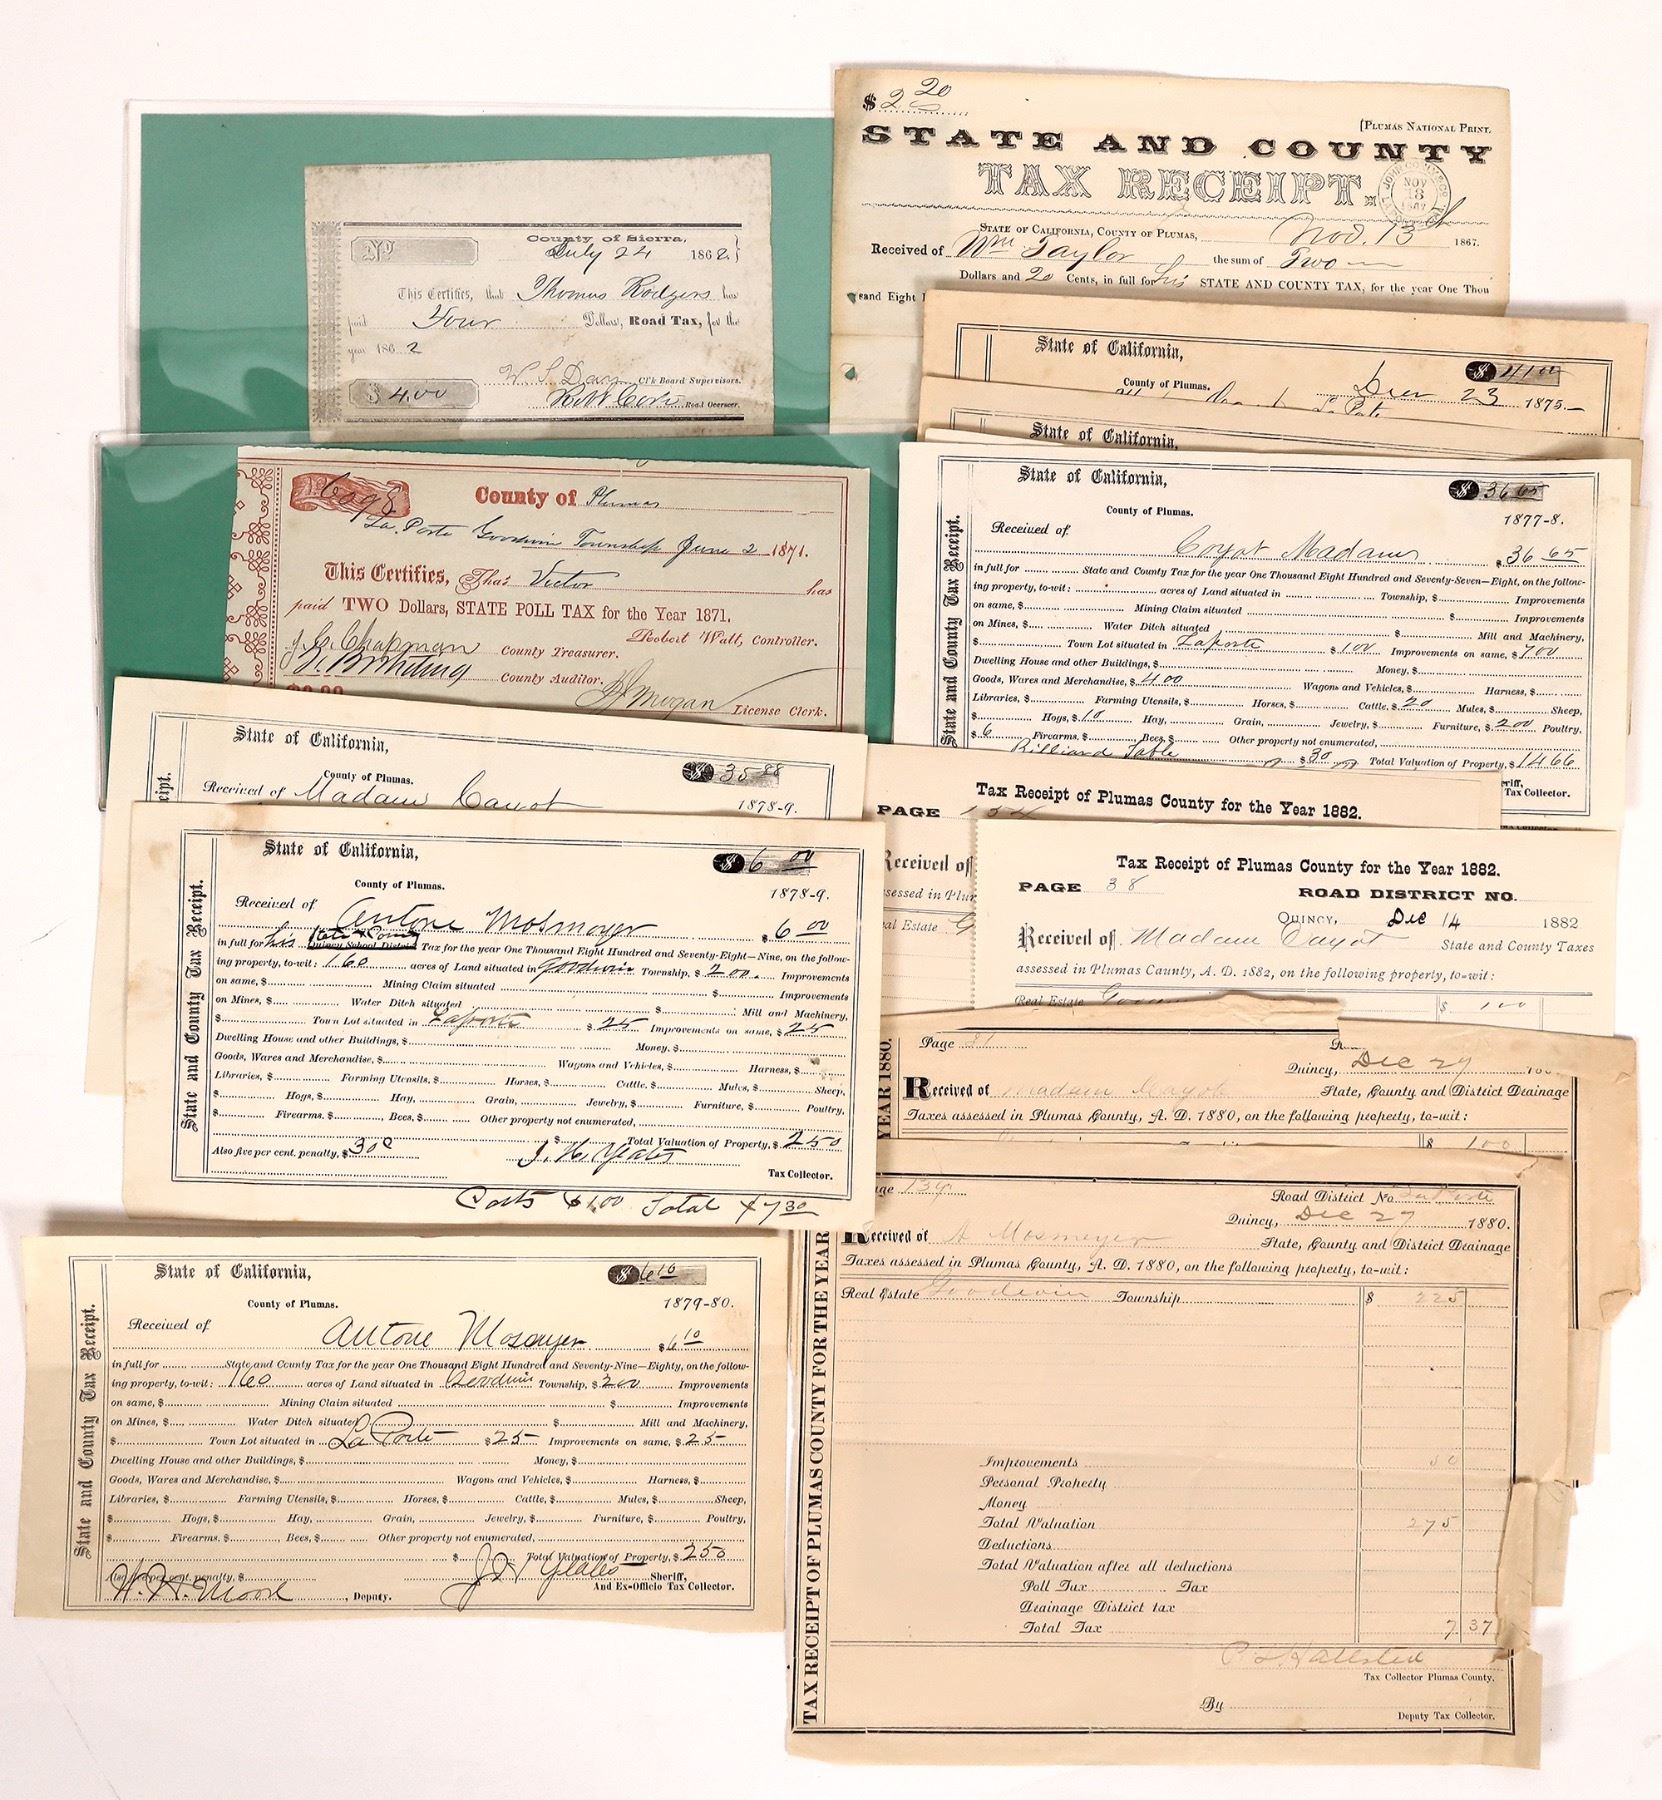 No
County of Sierra,
July 24 1862.
This Certifies, that Thomas Rodgers has
paid Four Dollars, Road Tax, for the
year 1862
Clk Board Supervisors.
$ 4.00
Road Overseer.
$ 2 20
[PLUMAS NATIONAL PRINT.
STATE AND COUNTY
TAX RECEIPT.
NOV 13
STATE OF CALIFORNIA, COUNTY OF PLUMAS, Nov. 13 1867.
Received of Wm. Taylor the sum of Two
Dollars and 20 Cents, in full for his STATE AND COUNTY TAX, for the year One Thou
sand Eight
State of California,
$ 41 00
County of Plumas. 23 1875.
State of California,
County of Plumas
La Porte Goodwin Township June 2 1871.
This Certifies, That Victor has
paid TWO Dollars, STATE POLL TAX for the Year 1871.
Robert Watt, Controller.
J. C. Chapman County Treasurer.
County Auditor.
License Clerk.
State of California,
$ 36 65
County of Plumas.
1877-8.
Received of Coyot Madam $ 36 65
in full for State and County Tax for the year One Thousand Eight Hundred and Seventy-Seven—Eight, on the follow-
ing property, to-wit: acres of Land situated in Township, $ Improvements
on same, $ Mining Claim situated $ Improvements
on Mines, $ Water Ditch situated $ Mill and Machinery,
$ Town Lot situated in Laporte $ 100 Improvements on same, $ 700
Dwelling House and other Buildings, $ Money, $
Goods, Wares and Merchandise, $ 400 Wagons and Vehicles, $ Harness, $
Libraries, $ Farming Utensils, $ Horses, $ Cattle, $ 20 Mules, $ Sheep,
$ Hogs, $ 10 Hay, $ Grain, $ Jewelry, $ Furniture, $ 200 Poultry,
$ 6 Firearms, $ Bees, $ Other property not enumerated,
Billiard Table $ 30 Total Valuation of Property, $ 1466
Sheriff,
Tax Collector.
State and County Tax Receipt.
State of California,
County of Plumas.
$ 35 88
Received of Madam Cayot 1878-9.
State of California,
$ 6 00
County of Plumas.
1878-9.
Received of Antone Mosmoyer $ 6 00
in full for his State & County Quincy School District Tax for the year One Thousand Eight Hundred and Seventy-Eight—Nine, on the follow-
ing property, to-wit: 160 acres of Land situated in Goodwin Township, $ 200 Improvements
on same, $ Mining Claim situated $ Improvements
on Mines, $ Water Ditch situated $ Mill and Machinery,
$ Town Lot situated in Laporte $ 25 Improvements on same, $ 25
Dwelling House and other Buildings, $ Money, $
Goods, Wares and Merchandise, $ Wagons and Vehicles, $ Harness, $
Libraries, $ Farming Utensils, $ Horses, $ Cattle, $ Mules, $ Sheep,
$ Hogs, $ Hay, $ Grain, $ Jewelry, $ Furniture, $ Poultry,
$ Firearms, $ Bees, $ Other property not enumerated,
$ Total Valuation of Property, $ 250
Also five per cent. penalty, $ 30c J. H. Yeates
Tax Collector.
Costs $1,00 Total $7 30
State and County Tax Receipt.
PAGE 154 Tax Receipt of Plumas County for the Year 1882.
Received of
assessed in Plum
Real Estate G
Tax Receipt of Plumas County for the Year 1882.
PAGE 38 ROAD DISTRICT NO.
QUINCY, Dec 14 1882
Received of Madam Cayot State and County Taxes
assessed in Plumas County, A. D. 1882, on the following property, to-wit:
Real Estate $ 100
Page 31
Quincy, Dec 27
Received of Madam Cayot State, County and District Drainage
Taxes assessed in Plumas County, A. D. 1880, on the following property, to-wit:
$ 100
YEAR 1880.
age 139 Road District No. La Porte
Quincy, Dec 27 1880.
Received of A Mosmeyer State, County and District Drainage
Taxes assessed in Plumas County, A. D. 1880, on the following property, to-wit:
Real Estate Goodwin Township $ 225
Improvements 50
Personal Property
Money
Total Valuation 275
Deductions
Total Valuation after all deductions
Poll Tax Tax
Drainage District tax
Total Tax 7 37
Tax Collector Plumas County.
By
Deputy Tax Collector.
TAX RECEIPT OF PLUMAS COUNTY FOR THE YEAR
State of California,
$ 6 10
County of Plumas.
1879-80.
Received of Antone Mosmyer $ 6 10
in full for State and County Tax for the year One Thousand Eight Hundred and Seventy-Nine—Eighty, on the follow-
ing property, to-wit: 160 acres of Land situated in Goodwin Township, $ 200 Improvements
on same, $ Mining Claim situated $ Improvements
on Mines, $ Water Ditch situated $ Mill and Machinery,
$ Town Lot situated in La Porte $ 25 Improvements on same, $ 25
Dwelling House and other Buildings, $ Money, $
Goods, Wares and Merchandise, $ Wagons and Vehicles, $ Harness, $
Libraries, $ Farming Utensils, $ Horses, $ Cattle, $ Mules, $ Sheep,
$ Hogs, $ Hay, $ Grain, $ Jewelry, $ Furniture, $ Poultry,
$ Firearms, $ Bees, $ Other property not enumerated,
$ Total Valuation of Property, $ 250
Also five per cent. penalty, $ J H Yeates Sheriff,
W. H. Moore, Deputy. And Ex-Officio Tax Collector.
State and County Tax Receipt.